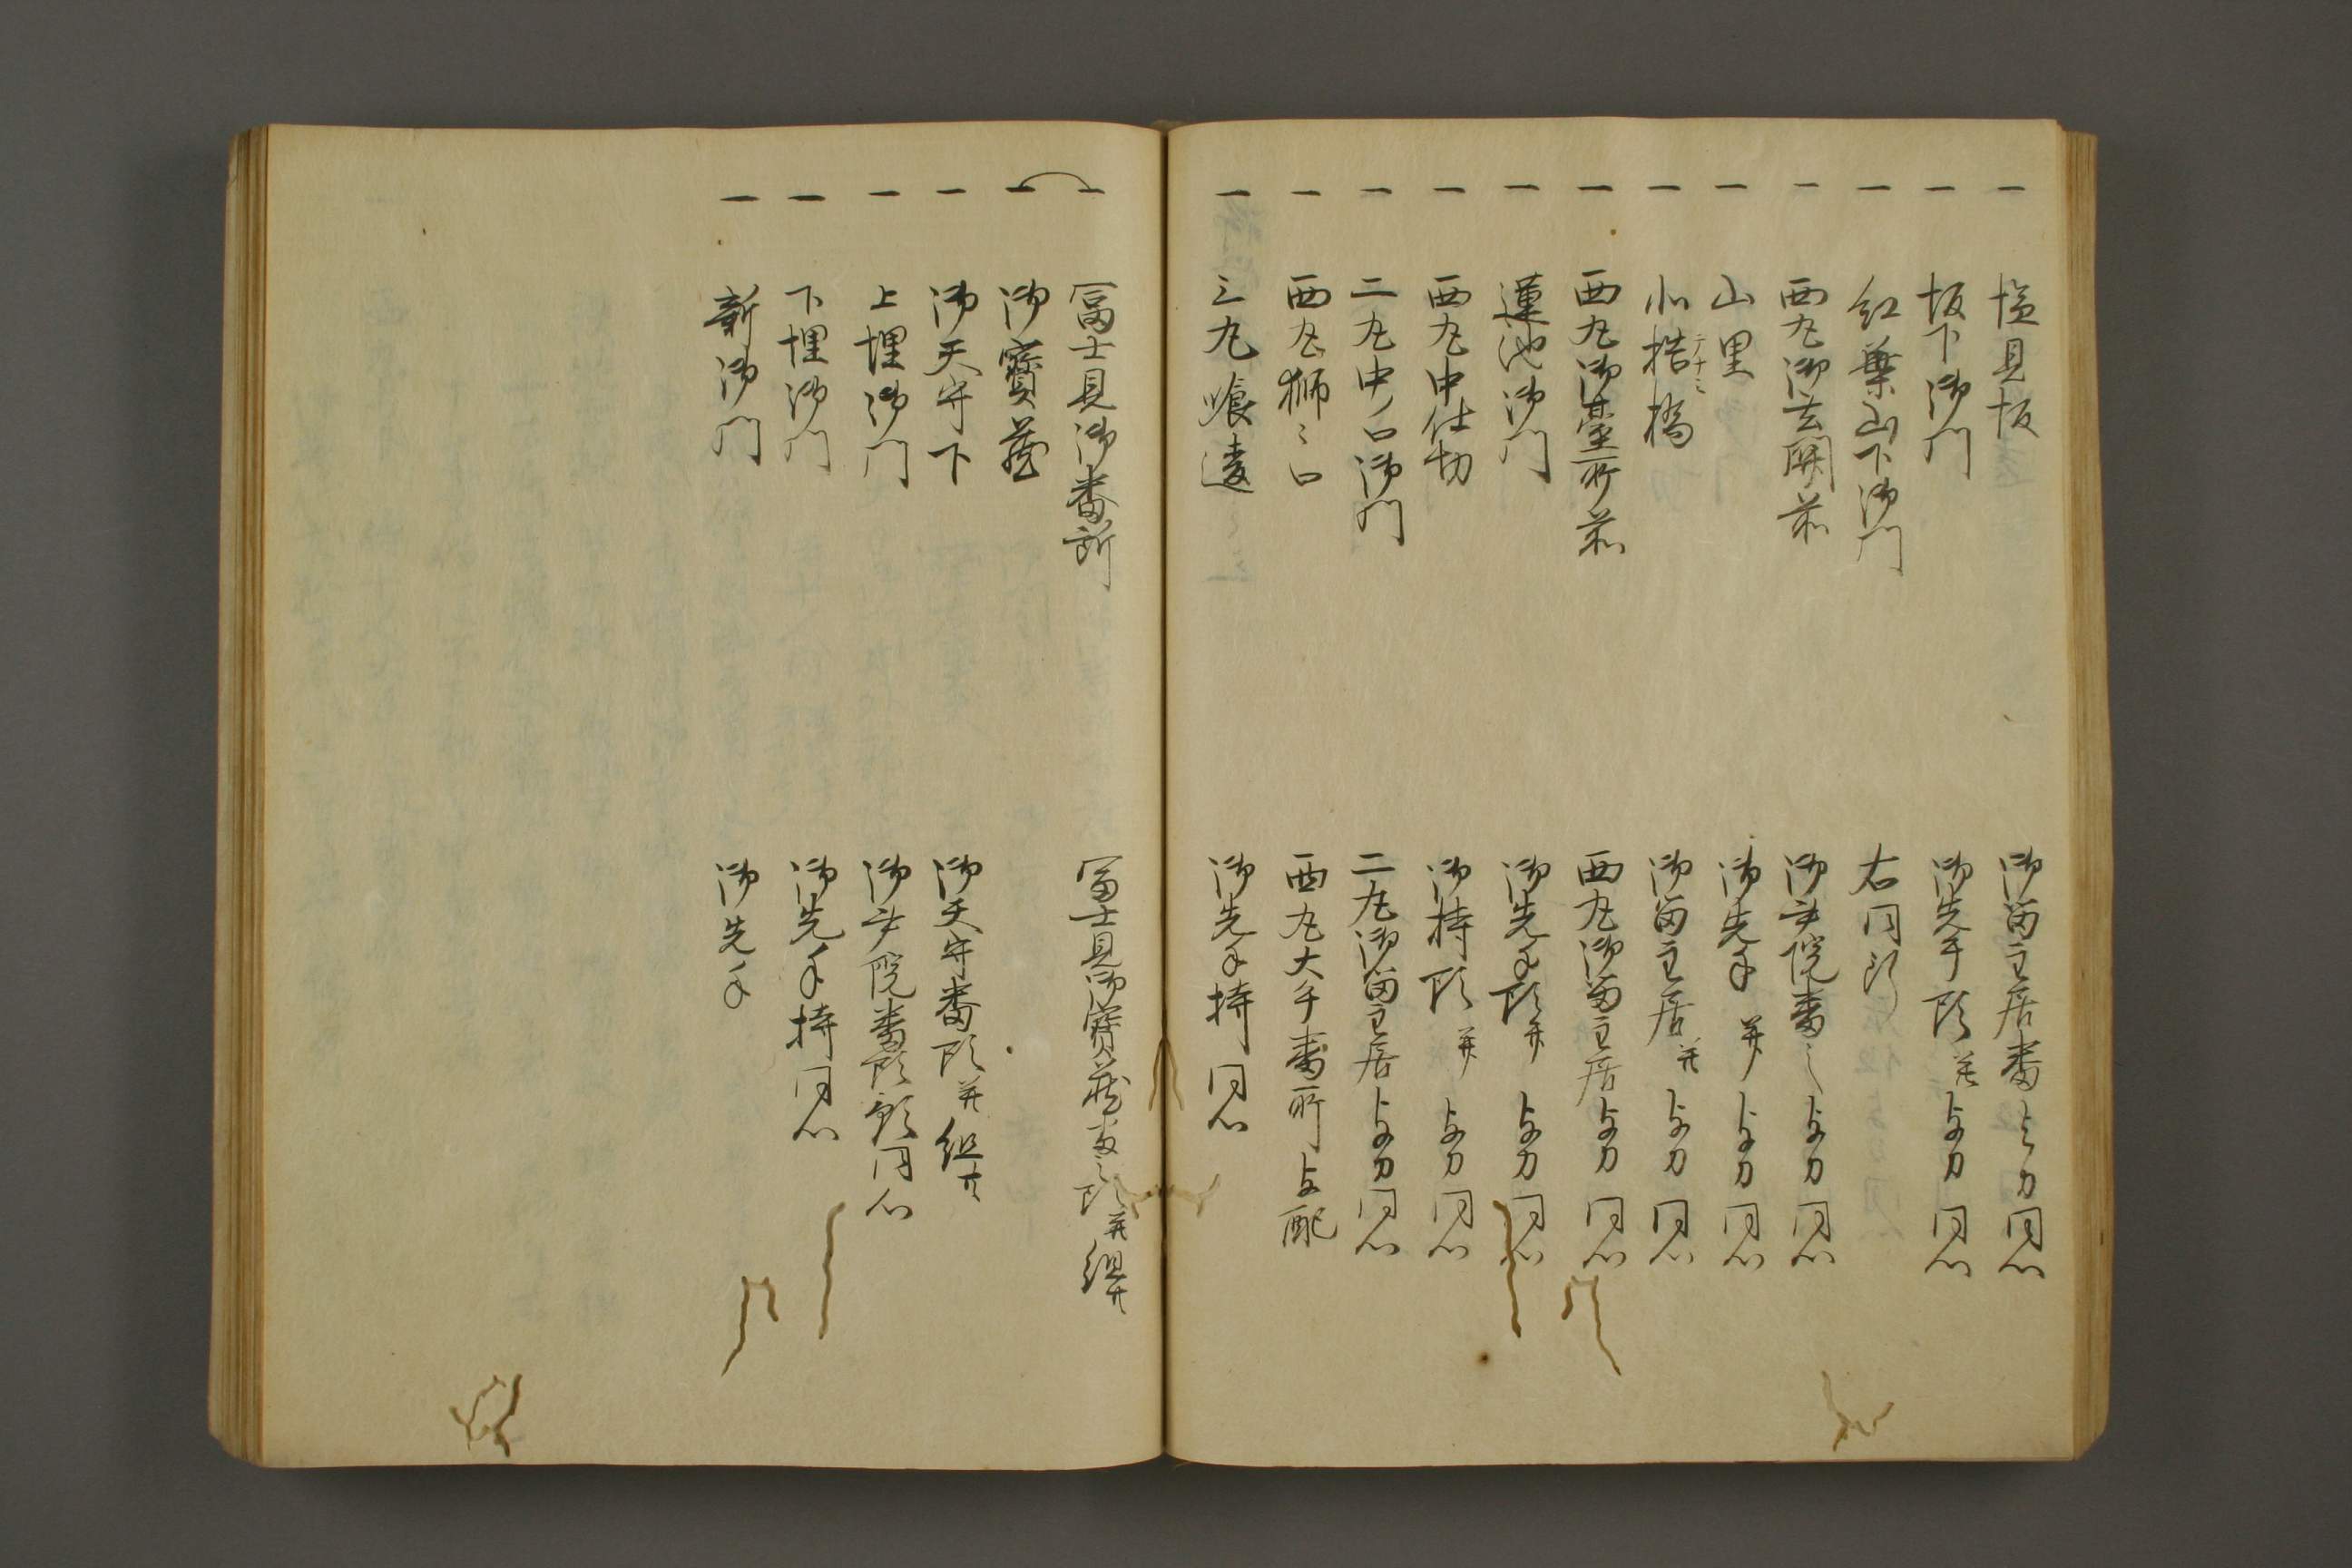 一 塩見坂 御留主居番与力同心
一 坂下御門 御先手頭并与力同心
一 紅葉山下御門 右同断
一 西丸御玄関前 御書院番之与力同心
一 山里 御先手并与力同心
一 北桔橋 御留主居并与力同心
一 西丸御臺所前 西丸御留主居与力同心
一 蓮池御門 御先手頭并与力同心
一 西丸中仕切 御持頭并与力同心
一 二丸中ノ口御門 二丸御留主居与力同心
一 西丸獅々口 西丸大手番所与配
一 三丸喰違 御先手持同心
一 冨士見御番所 冨士見御寳蔵番之頭并組共
一 御寳蔵
一 御天守下 御天守番頭并組共
一 上埋御門 御書院番頭組同心
一 下埋御門 御先手持同心
一 新御門 御先手